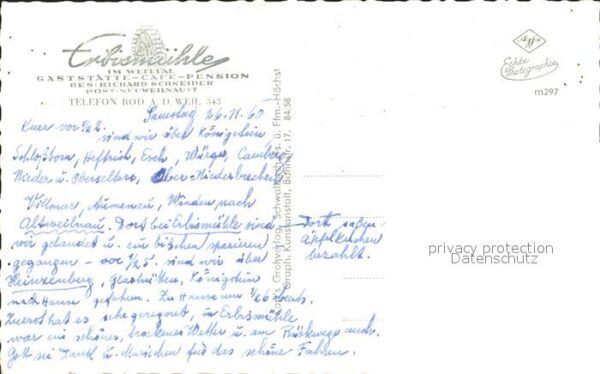 Erbismühle
IM WEILTAL
GASTSTÄTTE-CAFÉ-PENSION
BES. RICHARD SCHNEIDER
POST NEUWEILNAU/T
TELEFON ROD A. D. WEIL 343
Agfa
Echte
Photographie
m297
Samstag 26.11.60
Kurz vor 1/2 2
sind wir über Königstein
Schloßborn, Heftrich, Esch, Würges, Camberg
Nieder u. Oberselters, Ober Niederbrechen
Villmar, Aumenau, Winden nach
Altweilnau. Dort bei Erbismühle sind
wir gelandet u. ein bißchen spazieren
gegangen - vor 1/2 5. sind wir über
Heinzenberg, Glashütten, Königstein
nach Hause gefahren. Zu Hause um 1/2 6
Zuerst hat es sehr geregnet, in Erbismühle
war ein schönes, trockenes Wetter u. am Rückwege auch.
Gott sei Dank u. für das schöne Fahren.
Dort saßen
äpfelkuchen
bezahlt.
Schwalbach u. Ffm.-Höchst
Graph. Kunstanstalt, Bahnstr. 17. 8458
privacy protection
Datenschutz